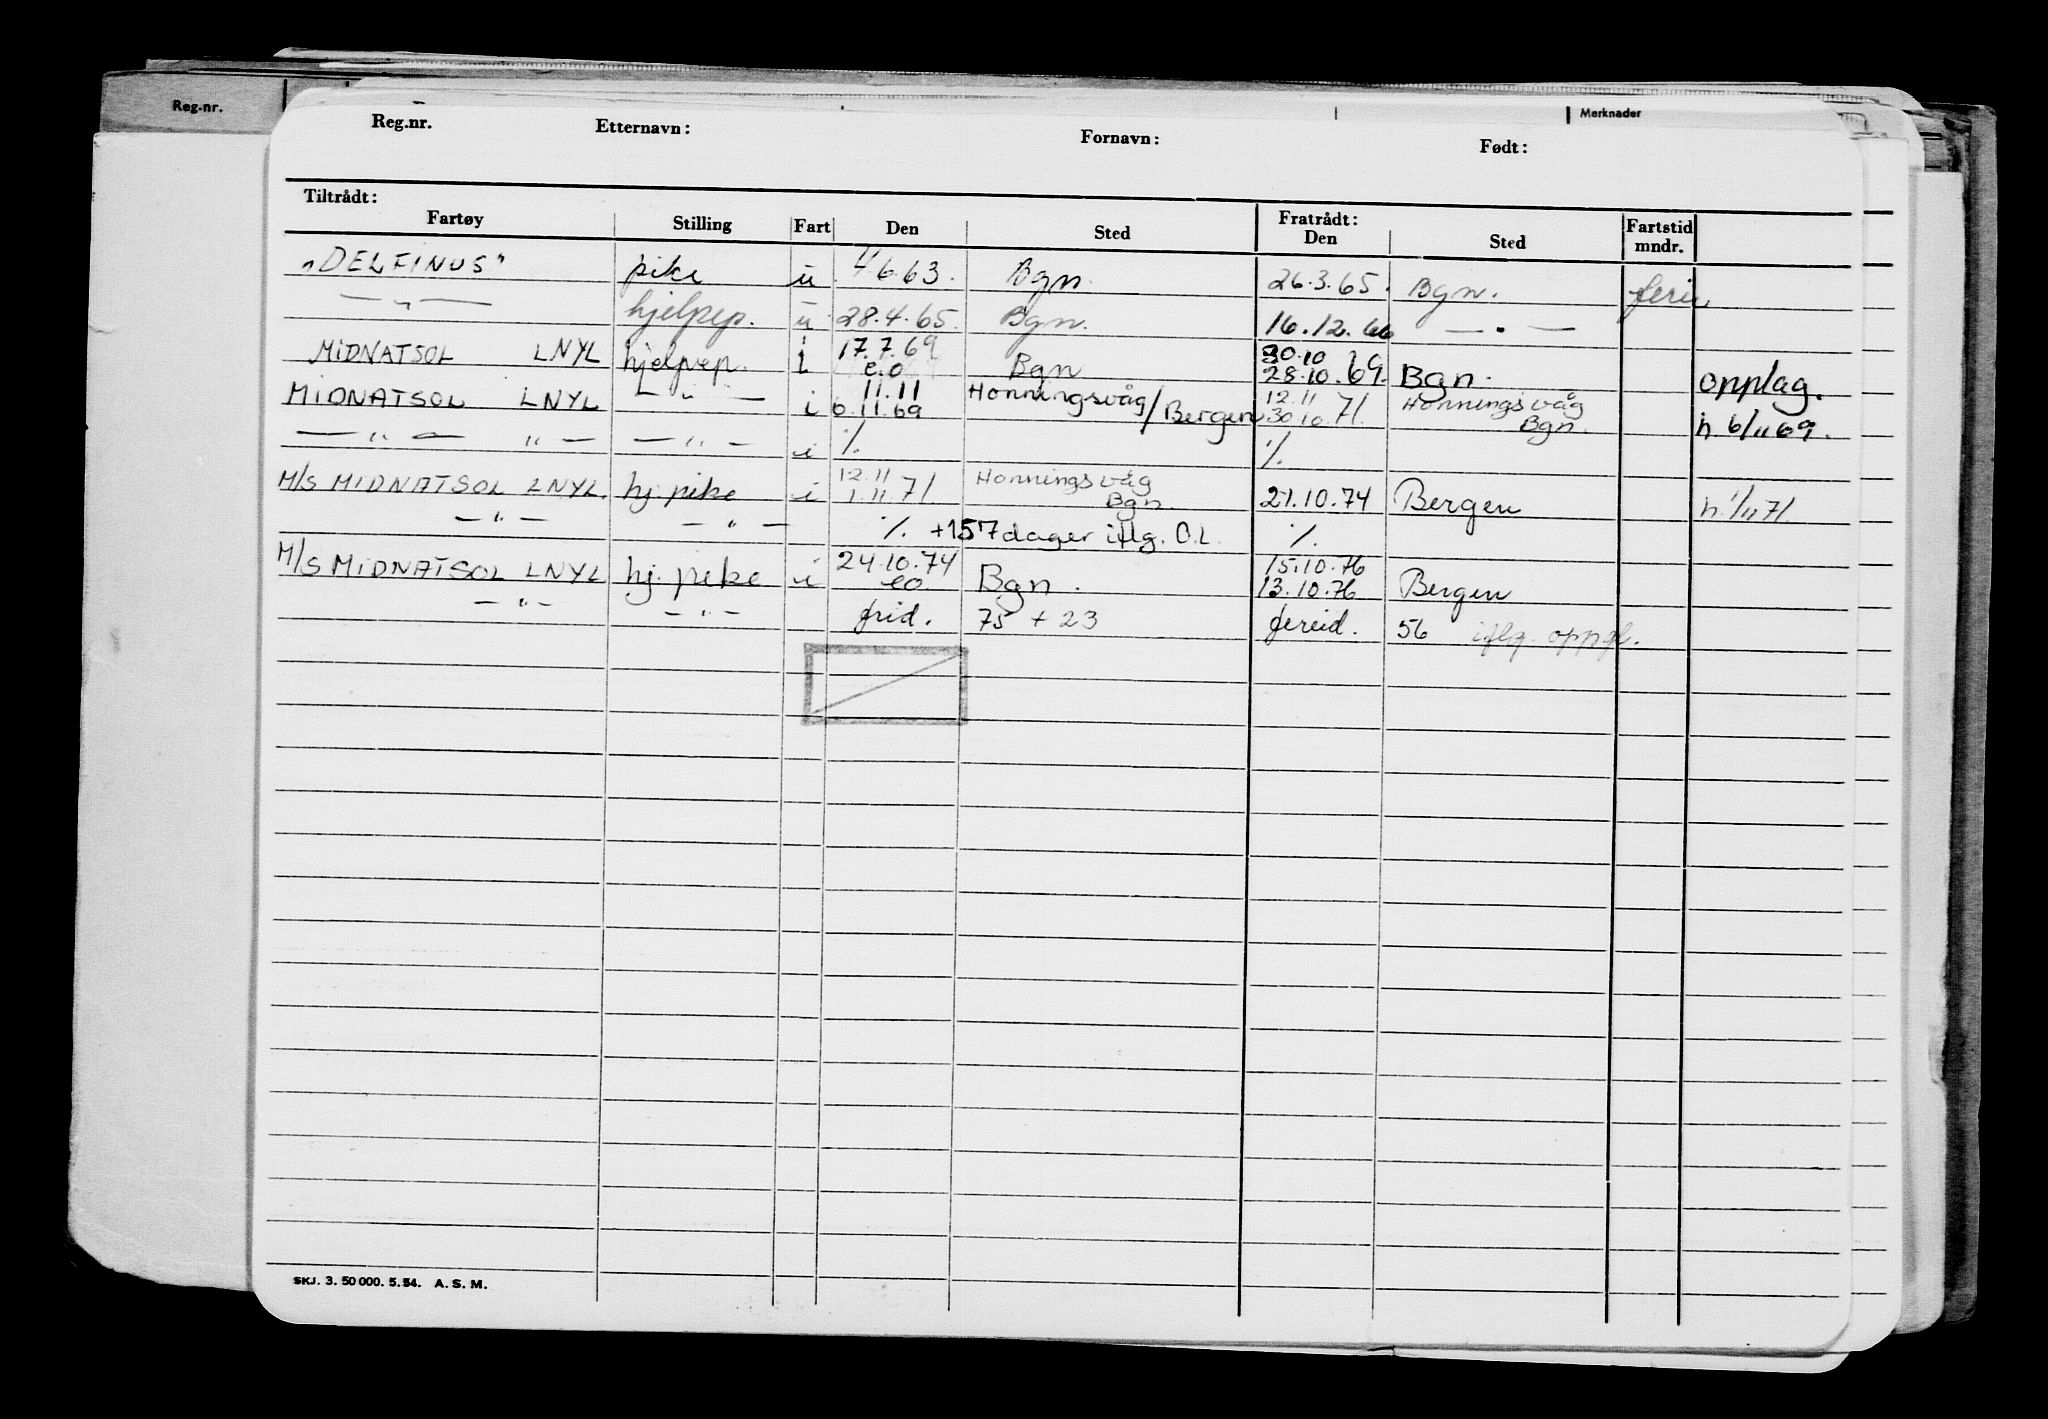 Reg-nr.
Merknader
Reg.nr. Etternavn: Fornavn: Født:
Tiltrådt: Fratrådt:
Fartøy Stilling Fart Den Sted Den Sted Fartstid mndr.
"DELFINUS" pike u 4.6.63. Bgn. 26.3.65. Bgn. ferie
— " — hjelpep. u 28.4.65. Bgn. 16.12.66 — " —
17.7.69 30.10
MIDNATSOL LNYL hjelpep. i e.o Bgn 28.10.69. Bgn. opplag.
11.11 Honningsvåg 12.11 Honningsvåg
MIDNATSOL LNYL — " — i 6.11.69 / Bergen 30.10.71. Bgn. h. 6/11 69.
— " — " — — " — i ./. ./.
12.11 Honningsvåg
M/S MIDNATSOL LNYL. hj. pike i 1.11 71 Bgn. 21.10.74 Bergen h. 1/11 71.
— " — — " — ./. +157 dager iflg. O.L. ./.
24.10.74 15.10.76
M/S MIDNATSOL LNYL hj. pike i eo Bgn. 13.10.76 Bergen
— " — — " — frid. 75 + 23 fereid. 56 iflg. oppg.
SKJ. 3. 50 000. 5. 54. A. S. M.